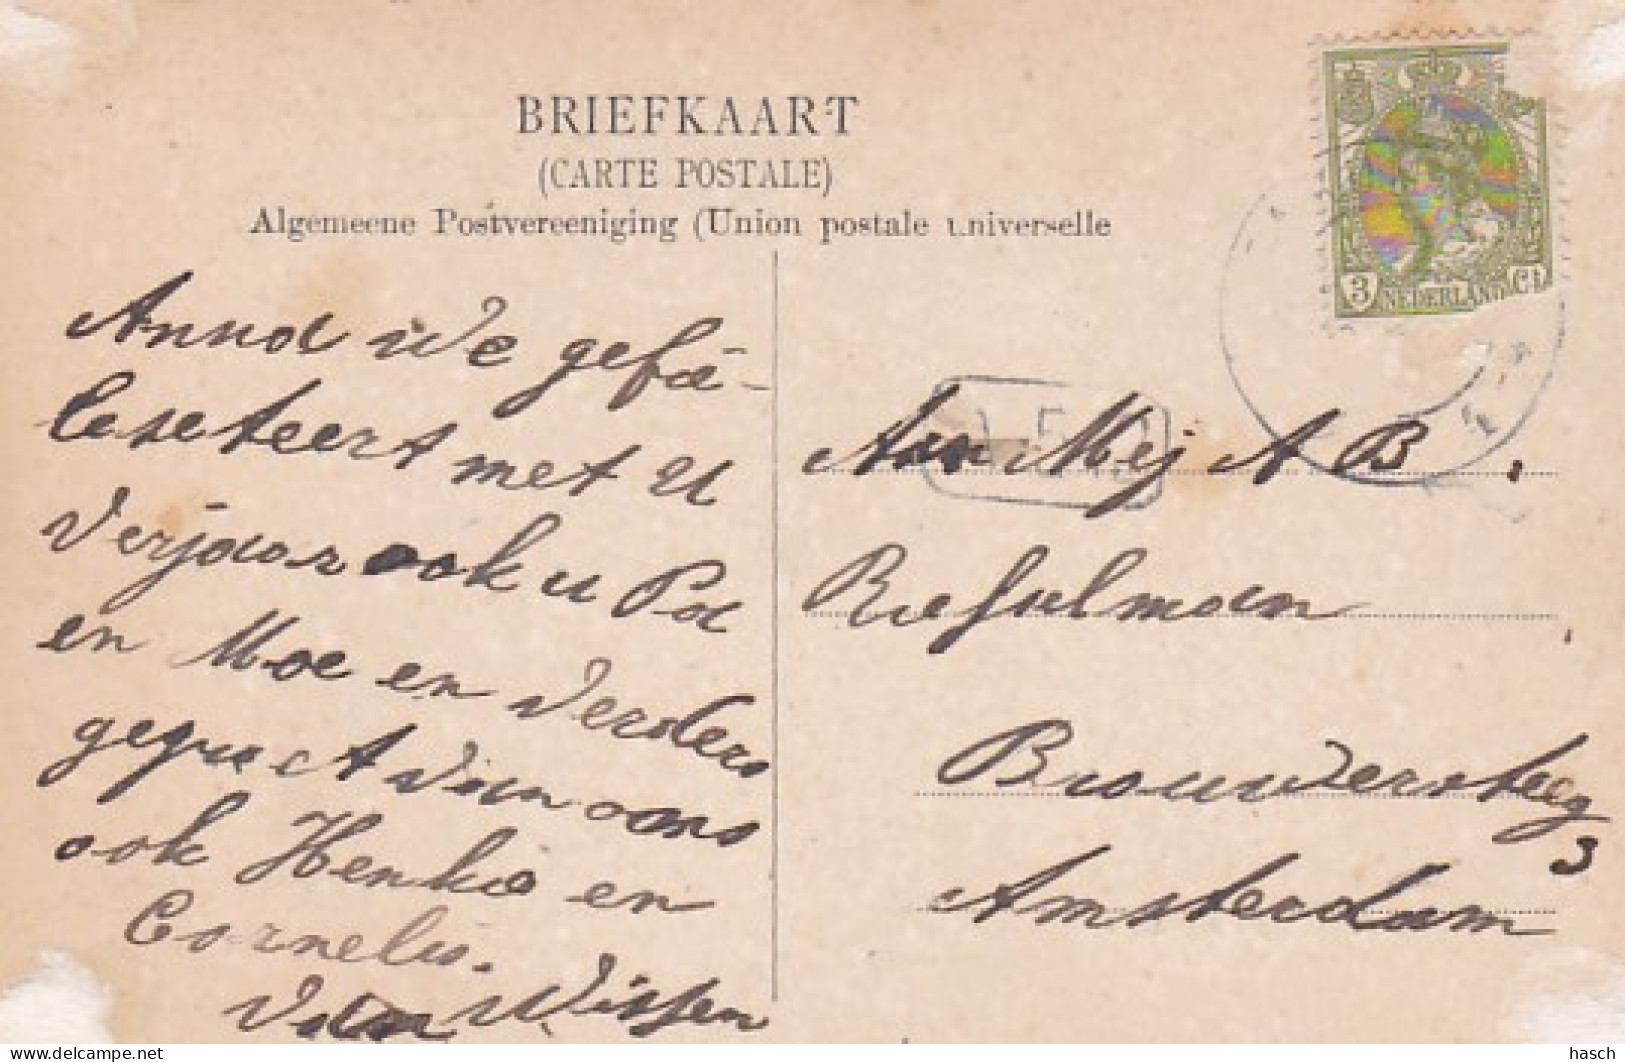 BRIEFKAART
(CARTE POSTALE)
Algemeene Postvereeniging (Union postale universelle
3 NEDERLAND Ct
Anna we gefé-
leseteert met u
verjaar ook u Pa
en Moe en verders
gegroet van ons
ook Henkie en
Cornelis.
van Wissen
Aan Mej A B
Riefselman
Brouwersteeg
3
Amsterdam
hasch